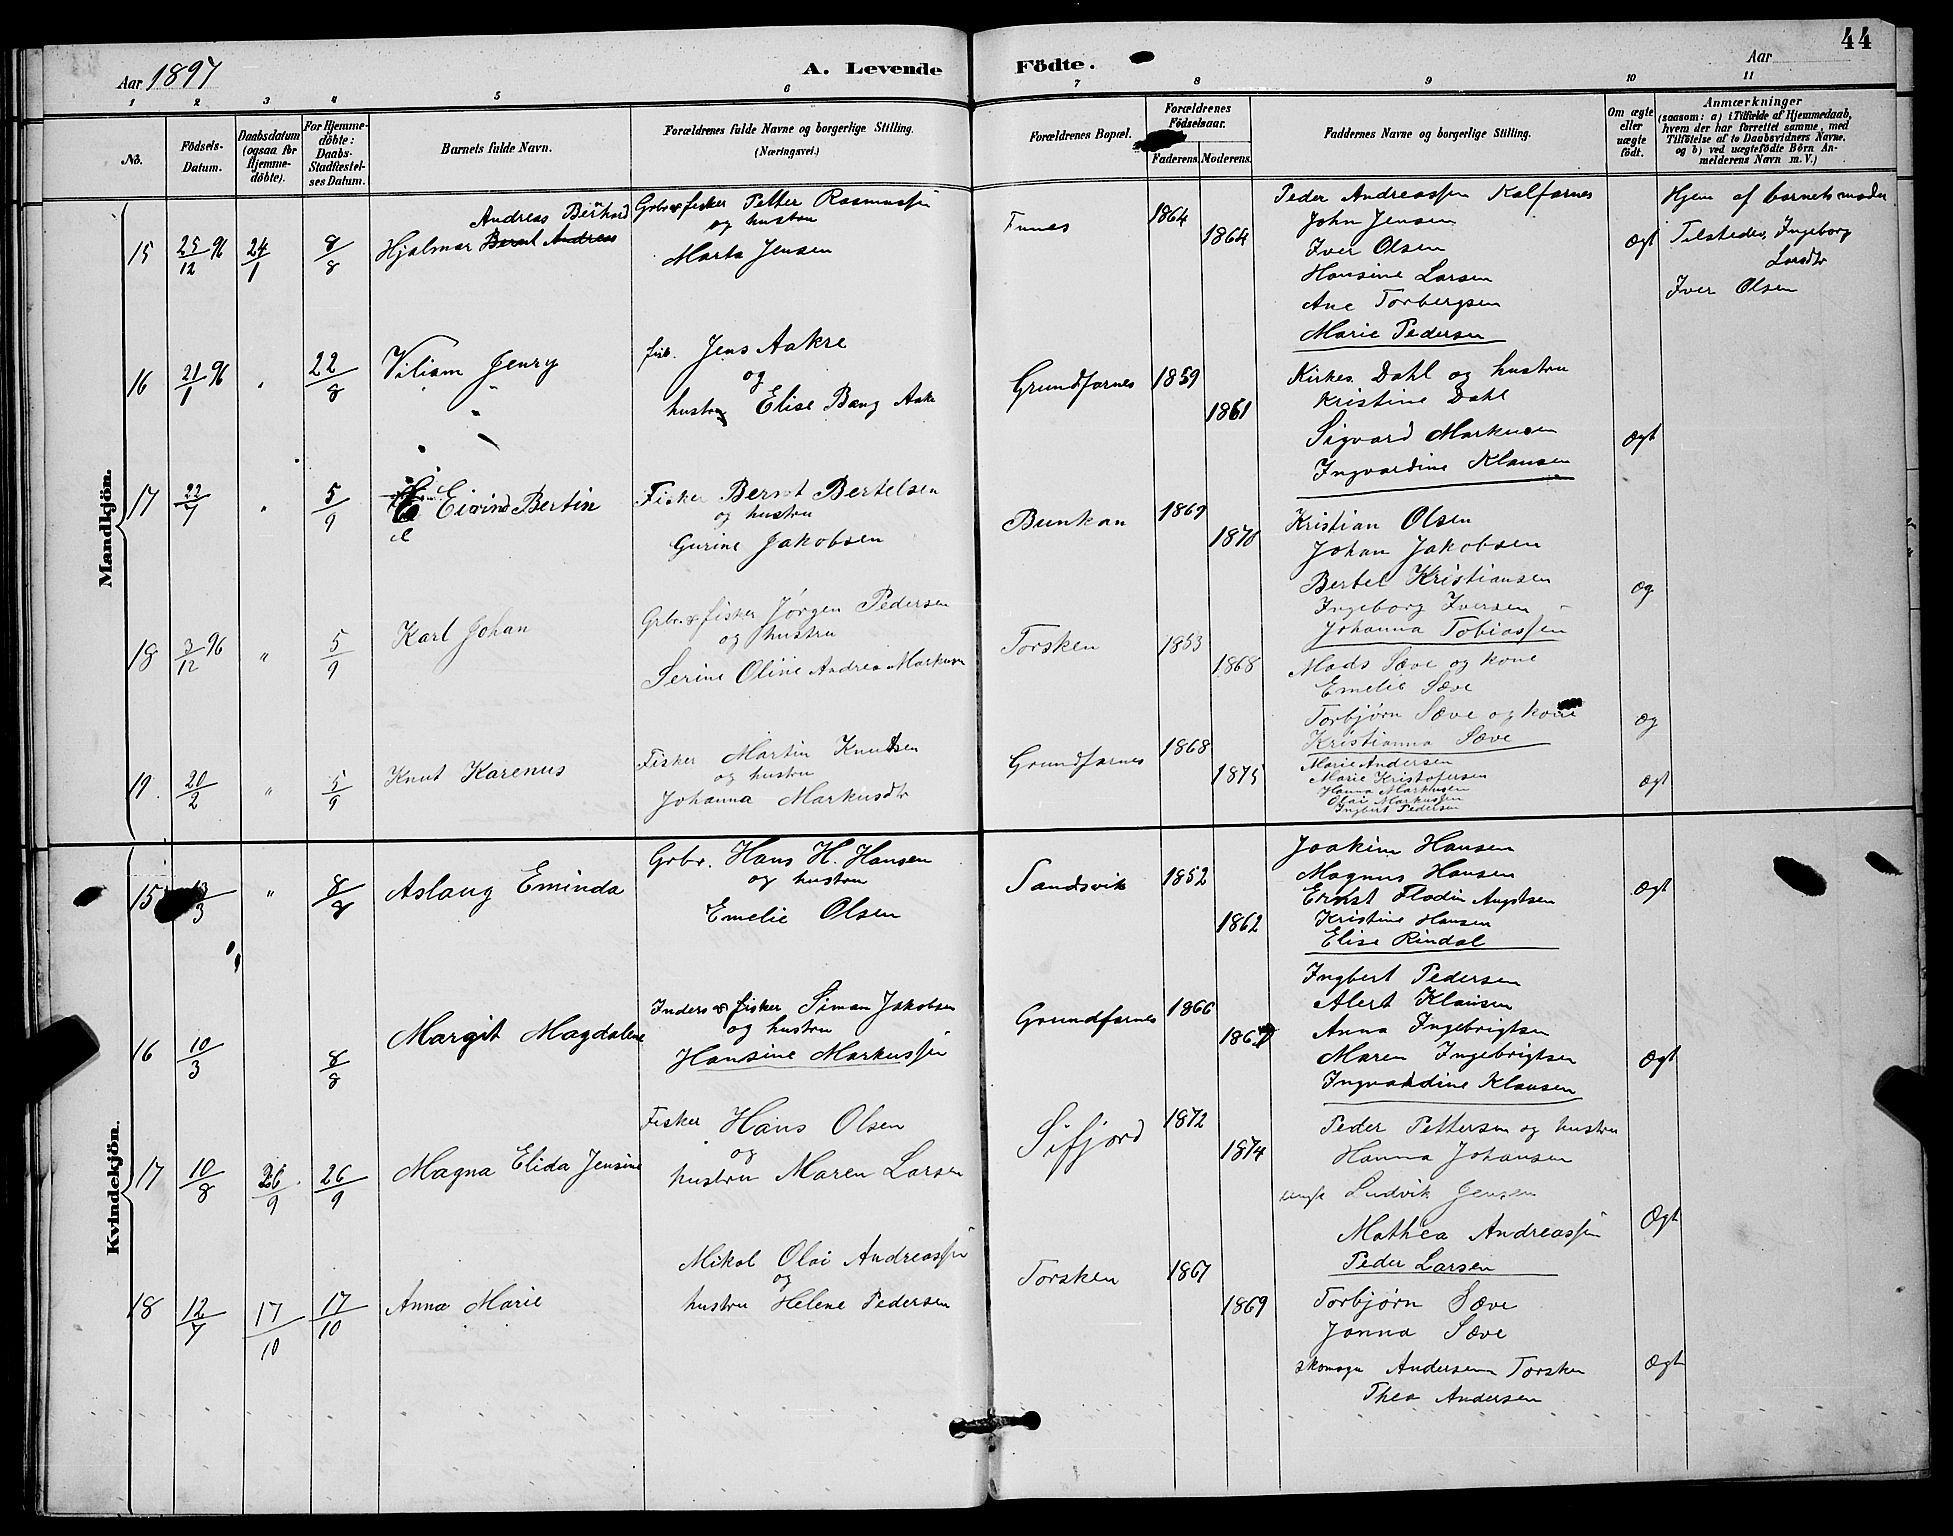 44
Aar 1897
A. Levende Födte.
Aar
1 2 3 4 5 6 7 8 9 10 11
No.
Födsels-Datum.
Daabsdatum (ogsaa for Hjemme-döbte).
For Hjemme-döbte: Daabs-Stadfæstel-ses Datum.
Barnets fulde Navn.
Forældrenes fulde Navne og borgerlige Stilling.
(Næringsvei.)
Forældrenes Bopæl.
Forældrenes Födselsaar.
Faderens. Moderens.
Faddernes Navne og borgerlige Stilling.
Om ægte eller uægte födt.
Anmærkninger
(saasom: a) i Tilfælde af Hjemmedaab, hvem der har forrettet samme, med Tilföielse af to Daabsvidners Navne, og b) ved uægtefödte Börn Anmelderens Navn m. V.)
Mandkjön.
15 25/12 96 24/1 8/8
Andreas Berhard
Hjalmar Bernt Andreas
Grbr & fisker Petter Rasmussen
og hustru
Marta Jensen
Funes 1864 1864
Peder Andreassen Kalfarnes
John Jensen
Iver Olsen
Hansine Larsen
Ane Torbergsen
Marie Pedersen
Ægt
Hjem af barnets moder
Tilstede, Ingeborg
Larsdtr
Iver Olsen
16 21/1 96 " 22/8
Viliam Henry
fisk. Jens Aakre
og
hustru Elise Bang Aakr
Grundfarnes 1859 1861
Kirkes. Dahl og hustru
Kristine Dahl
Sigvard Markusen
Ingvardine Klausen
Ægt
17 22/7 " 5/9
Eivind Bertin
Fisker Bernt Bertelsen
og hustru
Gurine Jakobsen
Bunkan 1869 1870
Kristian Olsen
Johan Jakobsen
Bertel Kristiansen
Ingeborg Iversen
Johanna Tobiassen
Æg
18 3/12 96 " 5/9
Karl Johan
Grbr. & fisker Jørgen Pedersen
og hustru
Serine Oline Andrea Markusen
Torsken 1853 1868
Mads Sæve og kone
Emelie Sæve
Torbjørn Sæve og kone
Kristianna Sæve
Æg
19. 20/2 " 5/9
Knut Karenus
Fisker Martin Knutsen
og hustru
Johanna Markusdtr
Grundfarnes 1868 1875
Marie Andersen
Marie Kristofersen
Hanna Markusen
Olai Markussen
Ingbert Pedersen
Ægt
Kvindekjön.
15 13/3 " 8/8
Aslaug Eminda
Grbr. Hans H. Hansen
og hustru
Emelie Olsen
Sandsvik 1852 1862
Joakim Hansen
Magnus Hansen
Ernst Flodin Augstsen
Kristine Hansen
Elise Rindal
Ægt
16 10/3 8/8
Margit Magdalene
Inders & fisker Siman Jakobsen
og hustru
Hansine Markussen
Grundfarnes 1866
Ingbert Pedersen
Alert Klausen
Anna Ingebrigtsen
Maren Ingebrigtsen
Ingvardine Klausen
Ægt
17 10/8 26/9 26/9
Magna Elida Jensine
Fisker Hans Olsen
og
hustru Maren Larsen
Sifjord 1872 1874
Peder Pettersen og hustru
Hanna Johansen
ungk Ludvik Jensen
Mathea Andreassen
Peder Larsen
Ægt
18 12/7 17/10 17/10
Anna Marie
Mikal Olai Andreassen
og
hustru Helene Pedersen
Torsken 1867 1869
Torbjørn Sæve
Janna Sæve
skomagr Andersen Torsken
Thea Andersen
Ægt